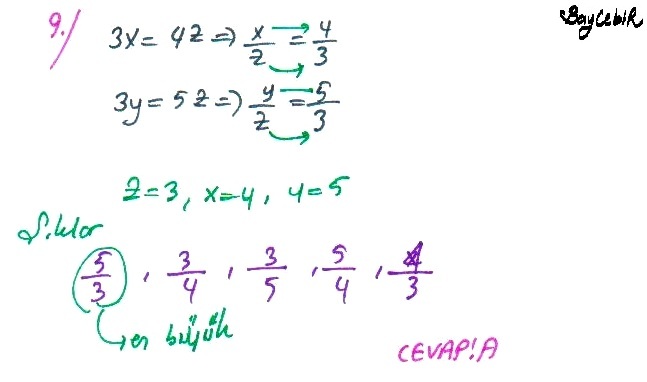 9./ 3x = 4z ⇒ x/z = 4/3
BayCebir
3y = 5z ⇒ y/z = 5/3
z=3, x=4, y=5
Şıklar
5/3, 3/4, 3/5, 5/4, 4/3
en büyük
CEVAP!A